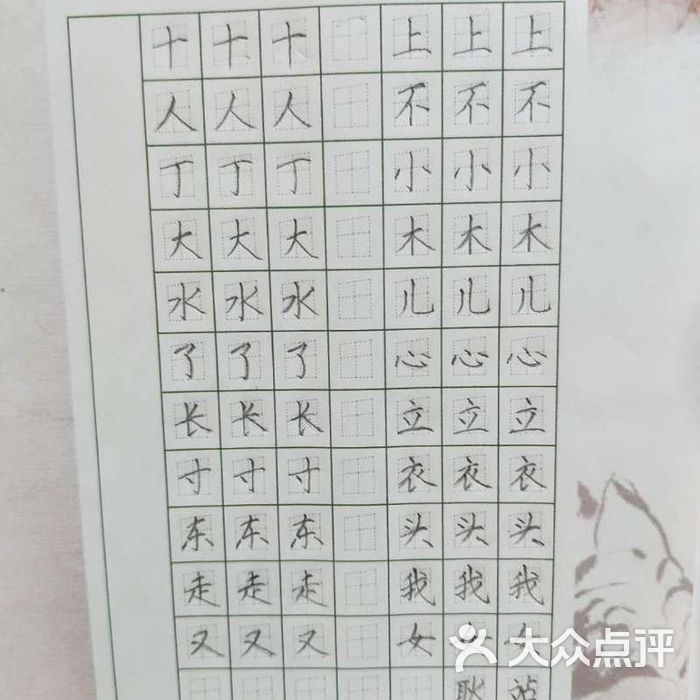 十 十 十 上 上 上
人 人 人 不 不 不
丁 丁 丁 小 小 小
大 大 大 木 木 木
水 水 水 儿 儿 儿
了 了 了 心 心 心
长 长 长 立 立 立
寸 寸 寸 衣 衣 衣
东 东 东 头 头 头
走 走 走 我 我 我
又 又 又 女 女 女
耿
大众点评